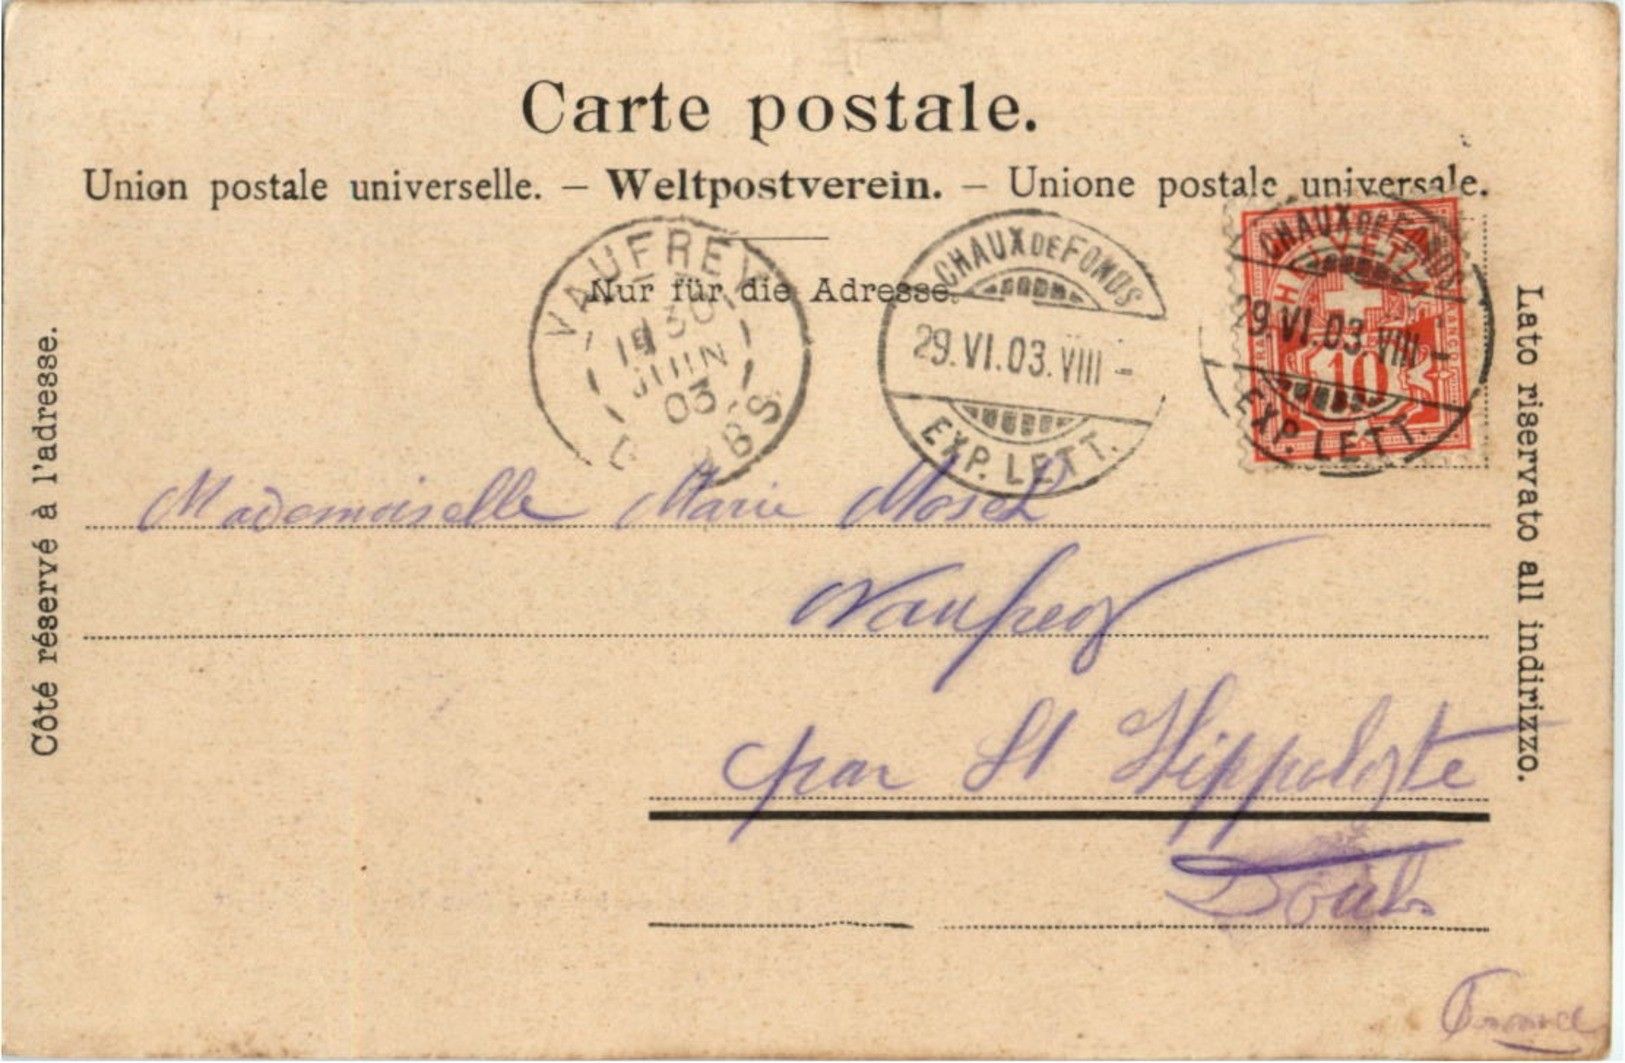 Carte postale.
Union postale universelle. – Weltpostverein. – Unione postale universale.
Nur für die Adresse.
Côté réservé à l'adresse.
Lato riservato all indirizzo.
VAUFREY
19 30
JUIN
03
BS
CHAUX DE FONDS
29.VI.03.VIII –
EXP. LETT.
HELVETIA
FRANCO
10
CHAUX DE FONDS
29.VI.03.VIII –
EXP. LETT.
Mademoiselle Marie
Vaufrey
par St Hippolyte
Doubs